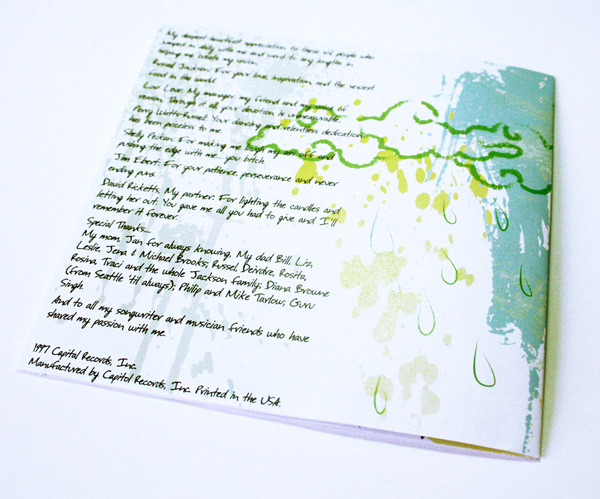 My deepest heartfelt appreciation to these six people who
jumped in daily with me and went to any lengths in
helping me create my vision.
Russell Jackson: For your love, inspiration and the
road in the world.
Love: My manager, my friend and my
Through it all your devotion is immeasurable.
Perry Your dancing and relentless dedication
has been priceless to me.
Shelly For making me laugh my ass off and
pushing the edge with me... you bitch.
Jim Ebert: For your patience, perseverance and never
ending puns.
David Ricketts: My partner. For lighting the candles and
letting her out. You gave me all you had to give and I'll
remember it forever.
Special Thanks...
My mom, Jan for always knowing. My dad Bill, Liz,
Leslie, Jena & Michael Brooks; Russel, Deirdre, Rosita,
Rosina, Traci and the whole Jackson Family; Diana Browne
(from Seattle 'til always); Philip and Mike Tarlow; Guru
Singh.
And to all my songwriter and musician friends who have
shared my passion with me.
1997 Capitol Records, Inc.
Manufactured by Capitol Records, Inc. Printed in the USA.